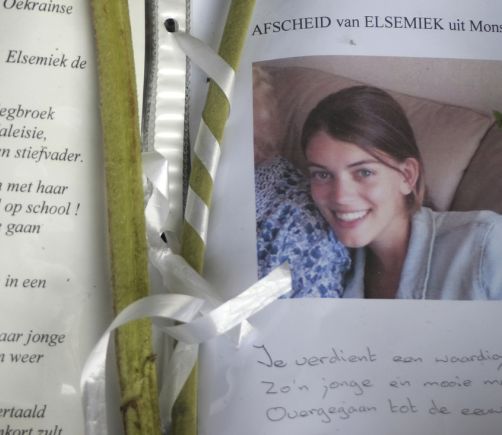 Oekraïnse
Elsemiek de
egbroek
aleisie,
n stiefvader.
n met haar
l op school !
gaan
in een
aar jonge
n weer
ertaald
nkort zult
AFSCHEID van ELSEMIEK uit Mons
Je verdient een waardig
Zo'n jonge en mooie m
Overgegaan tot de eeuw